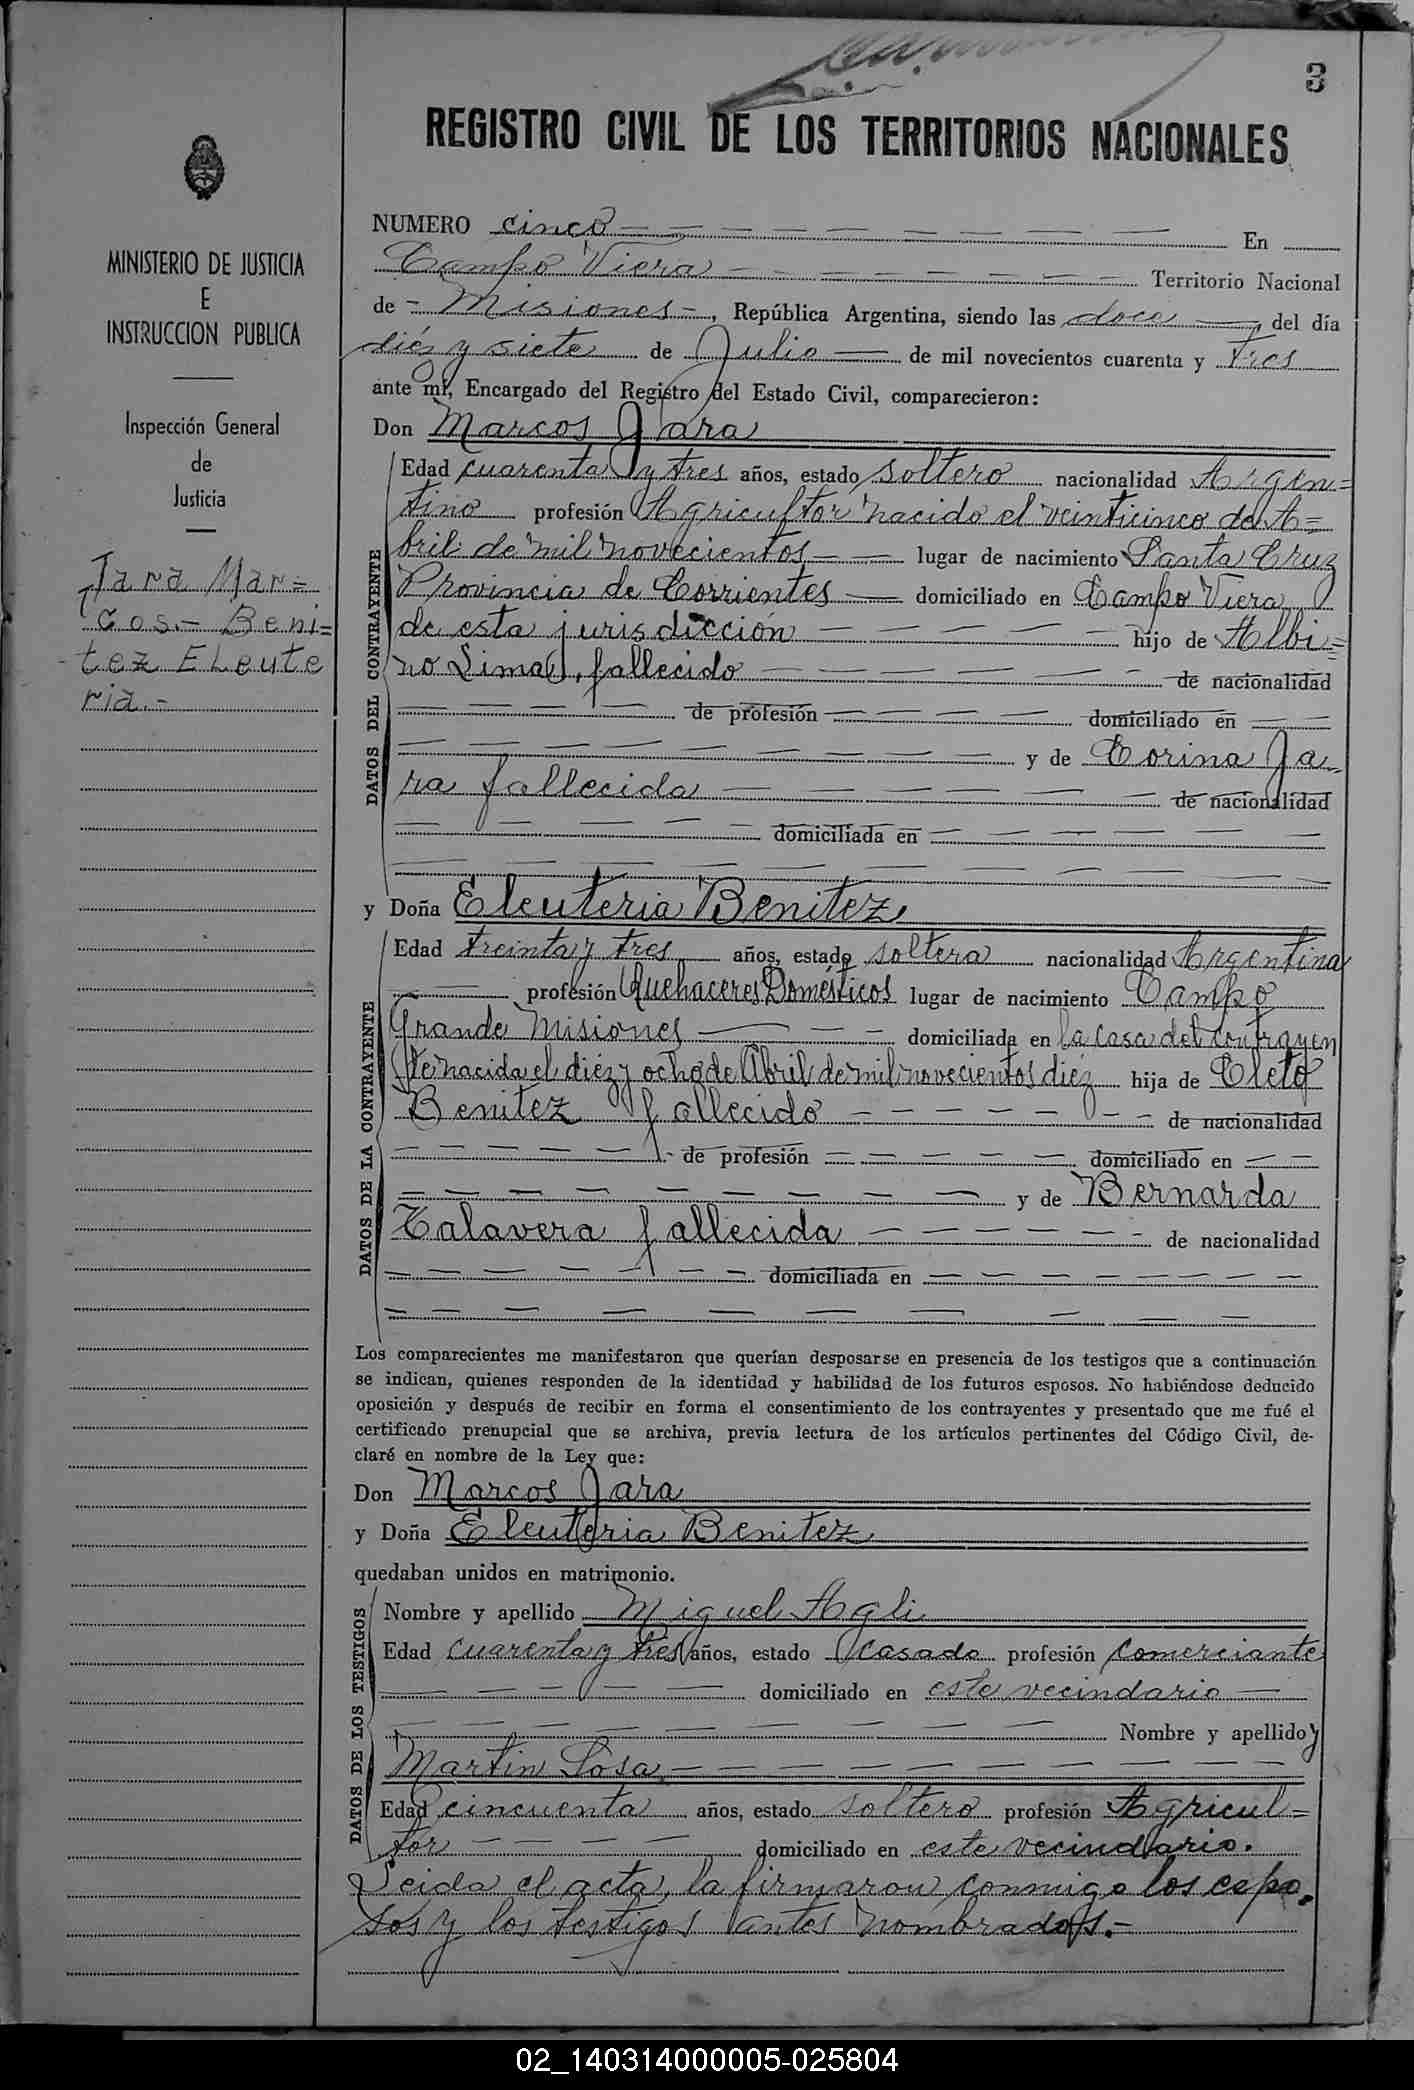 3
REGISTRO CIVIL DE LOS TERRITORIOS NACIONALES
MINISTERIO DE JUSTICIA
E
INSTRUCCION PUBLICA
Inspección General
de
Justicia
Jara Mar=
cos.- Beni=
tez Eleute
ria.-
NUMERO cinco En
Campo Viera Territorio Nacional
de - Misiones -, República Argentina, siendo las doce, del día
diéz y siete de Julio de mil novecientos cuarenta y tres
ante mí, Encargado del Registro del Estado Civil, comparecieron:
Don Marcos Jara
DATOS DEL CONTRAYENTE
Edad cuarenta y tres años, estado soltero nacionalidad Argen=
tino profesión Agricultor nacido el veinticinco de A=
bril de mil novecientos lugar de nacimiento Santa Cruz
Provincia de Corrientes domiciliado en Campo Viera
de esta jurisdiccion hijo de Albi=
no Lima, fallecido de nacionalidad
de profesión domiciliado en
y de Corina Ja-
ra fallecida de nacionalidad
domiciliada en
y Doña Eleuteria Benitez
DATOS DE LA CONTRAYENTE
Edad treinta y tres años, estado soltera nacionalidad Argentina
profesión Quehaceres Domésticos lugar de nacimiento Campo
Grande Misiones domiciliada en la casa del contrayen
te nacida el diéz y ocho de Abril de mil novecientos diéz hija de Cleto
Benitez fallecido de nacionalidad
de profesión domiciliado en
y de Bernarda
Talavera fallecida de nacionalidad
domiciliada en
Los comparecientes me manifestaron que querían desposarse en presencia de los testigos que a continuación
se indican, quienes responden de la identidad y habilidad de los futuros esposos. No habiéndose deducido
oposición y después de recibir en forma el consentimiento de los contrayentes y presentado que me fué el
certificado prenupcial que se archiva, previa lectura de los artículos pertinentes del Código Civil, de-
claré en nombre de la Ley que:
Don Marcos Jara
y Doña Eleuteria Benitez
quedaban unidos en matrimonio.
DATOS DE LOS TESTIGOS
Nombre y apellido Miguel Agli
Edad cuarenta y tres años, estado casado profesión comerciante
domiciliado en este vecindario
Nombre y apellido y
Martin Sosa
Edad cincuenta años, estado soltero profesión Agricul=
tor domiciliado en este vecindario.
Leida el acta, la firmaron conmigo los espo-
sos y los testigos antes nombrados.-
02_140314000005-025804